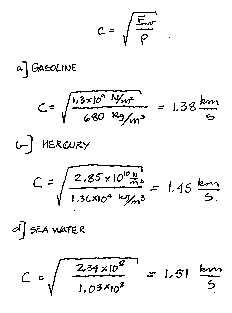 C = √(Ev/ρ)
a] GASOLINE
C = √(1.3×10⁹ N/m² / 680 kg/m³) = 1.38 km/s
b] MERCURY
C = √(2.85×10¹⁰ N/m² / 1.36×10⁴ kg/m³) = 1.45 km/s
d] SEA WATER
C = √(2.34×10⁹ / 1.03×10³) = 1.51 km/s